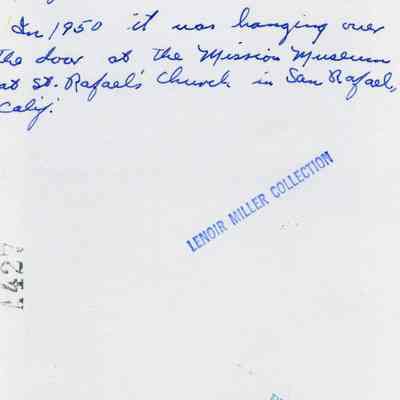 In 1950 it was hanging over
the door at the Mission Museum
at St. Rafael's Church in San Rafael,
Calif.
LENOIR MILLER COLLECTION
A427